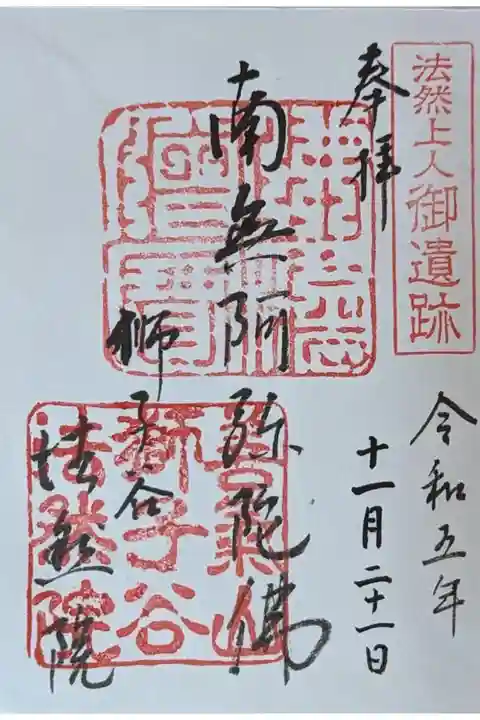 法然上人御遺跡
奉拝
令和五年
十一月二十一日
南無阿弥陀佛
獅子谷
法然院
善氣山
獅子谷
法然院